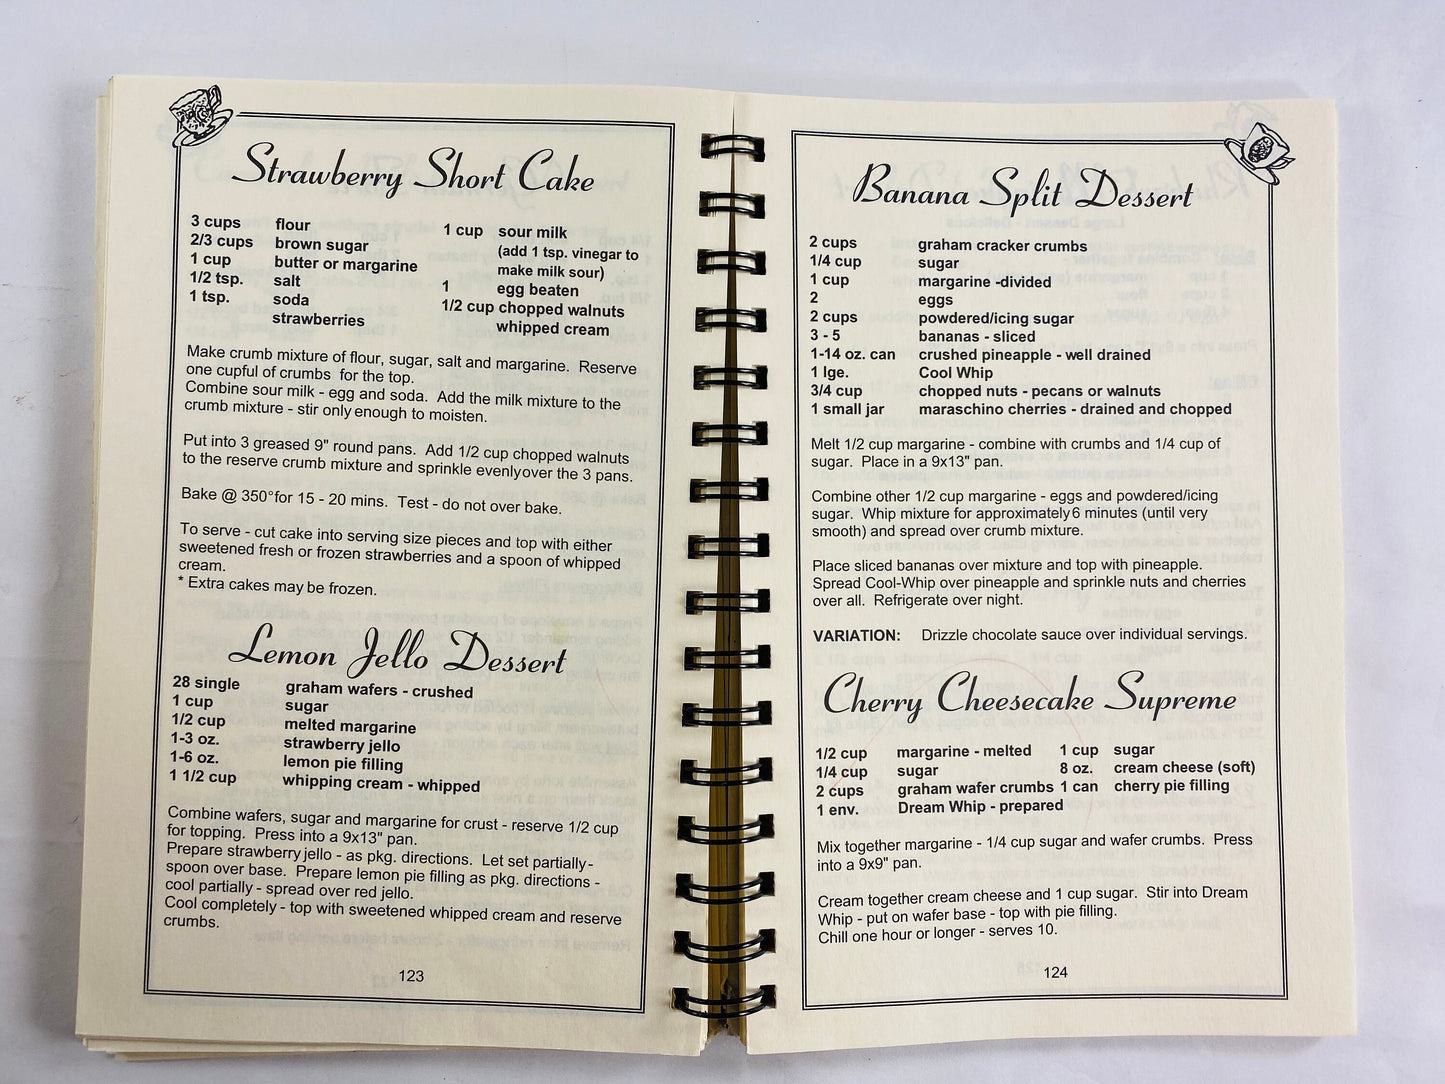 Strawberry Short Cake
3 cups flour
2/3 cups brown sugar
1 cup butter or margarine
1/2 tsp. salt
1 tsp. soda
strawberries
1 cup sour milk
(add 1 tsp. vinegar to
make milk sour)
1 egg beaten
1/2 cup chopped walnuts
whipped cream
Make crumb mixture of flour, sugar, salt and margarine. Reserve
one cupful of crumbs for the top.
Combine sour milk - egg and soda. Add the milk mixture to the
crumb mixture - stir only enough to moisten.
Put into 3 greased 9" round pans. Add 1/2 cup chopped walnuts
to the reserve crumb mixture and sprinkle evenlyover the 3 pans.
Bake @ 350°for 15 - 20 mins. Test - do not over bake.
To serve - cut cake into serving size pieces and top with either
sweetened fresh or frozen strawberries and a spoon of whipped
cream.
* Extra cakes may be frozen.
Lemon Jello Dessert
28 single graham wafers - crushed
1 cup sugar
1/2 cup melted margarine
1-3 oz. strawberry jello
1-6 oz. lemon pie filling
1 1/2 cup whipping cream - whipped
Combine wafers, sugar and margarine for crust - reserve 1/2 cup
for topping. Press into a 9x13" pan.
Prepare strawberry jello - as pkg. directions. Let set partially -
spoon over base. Prepare lemon pie filling as pkg. directions -
cool partially - spread over red jello.
Cool completely - top with sweetened whipped cream and reserve
crumbs.
123
Banana Split Dessert
2 cups graham cracker crumbs
1/4 cup sugar
1 cup margarine -divided
2 eggs
2 cups powdered/icing sugar
3 - 5 bananas - sliced
1-14 oz. can crushed pineapple - well drained
1 lge. Cool Whip
3/4 cup chopped nuts - pecans or walnuts
1 small jar maraschino cherries - drained and chopped
Melt 1/2 cup margarine - combine with crumbs and 1/4 cup of
sugar. Place in a 9x13" pan.
Combine other 1/2 cup margarine - eggs and powdered/icing
sugar. Whip mixture for approximately6 minutes (until very
smooth) and spread over crumb mixture.
Place sliced bananas over mixture and top with pineapple.
Spread Cool-Whip over pineapple and sprinkle nuts and cherries
over all. Refrigerate over night.
VARIATION: Drizzle chocolate sauce over individual servings.
Cherry Cheesecake Supreme
1/2 cup margarine - melted 1 cup sugar
1/4 cup sugar 8 oz. cream cheese (soft)
2 cups graham wafer crumbs 1 can cherry pie filling
1 env. Dream Whip - prepared
Mix together margarine - 1/4 cup sugar and wafer crumbs. Press
into a 9x9" pan.
Cream together cream cheese and 1 cup sugar. Stir into Dream
Whip - put on wafer base - top with pie filling.
Chill one hour or longer - serves 10.
124